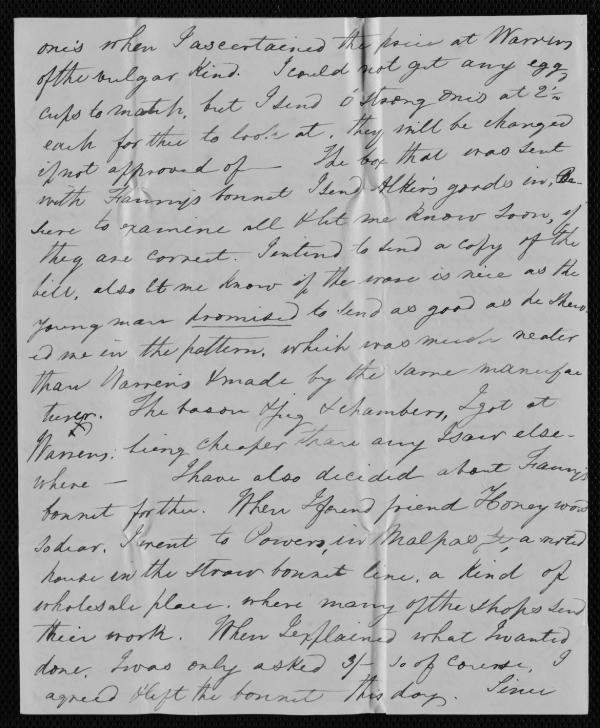 one's when I ascertained the price at Warrens
of the vulgar kind. I could not get any egg
cups to match, but I send 6 strong one's at 2½
each for thee to look at, they will be changed
if not approved of — The box that was sent
with Fanny's bonnet I send Alker's goods in, Be
sure to examine all & let me know soon, if
they are correct. I intend to send a copy of the
bill, also let me know if the ware is nice as the
young man promised to send as good as he shew
ed me in the pattern, which was much neater
than Warrens & made by the same manufac
turer. The bason & jug & chambers, I got at
Warrens: being cheaper than any I saw else-
where — I have also decided about Fanny's
bonnet for thee. When I found friend Honeywood
so dear, I went to Powers, in Malpas St, a noted
house in the straw bonnet line, a kind of
wholesale place, where many of the shops send
their work. When I explained what I wanted
done, I was only asked 3/- so of course, I
agreed & left the bonnet this day. Since